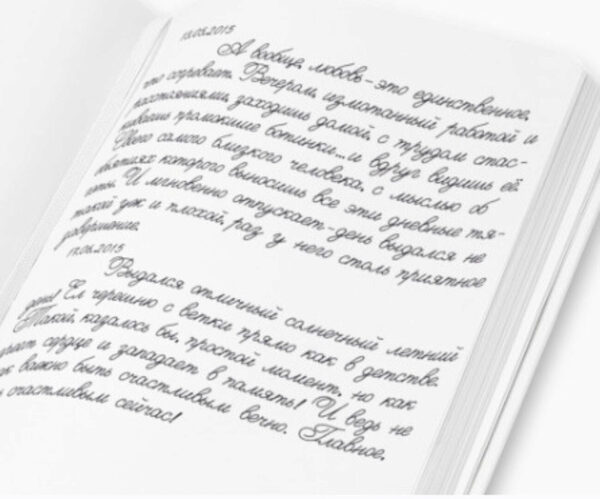 13.05.2015
А вообще, любовь – это единственное,
что согревает. Вечером, измотанный работой и
расстояниями, заходишь домой, с трудом стас-
киваешь промокшие ботинки... и вдруг видишь её.
Своего самого близкого человека, с мыслью об
объятиях которого выносишь все эти дневные тя-
готы. И мгновенно отпускает – день выдался не
такой уж и плохой, раз у него столь приятное
завершение.
17.06.2015
Выдался отличный солнечный летний
день! Ел черешню с ветки прямо как в детстве.
Такой, казалось бы, простой момент, но как
сердце и западает в память! И ведь не
важно быть счастливым вечно. Главное,
счастливым сейчас!